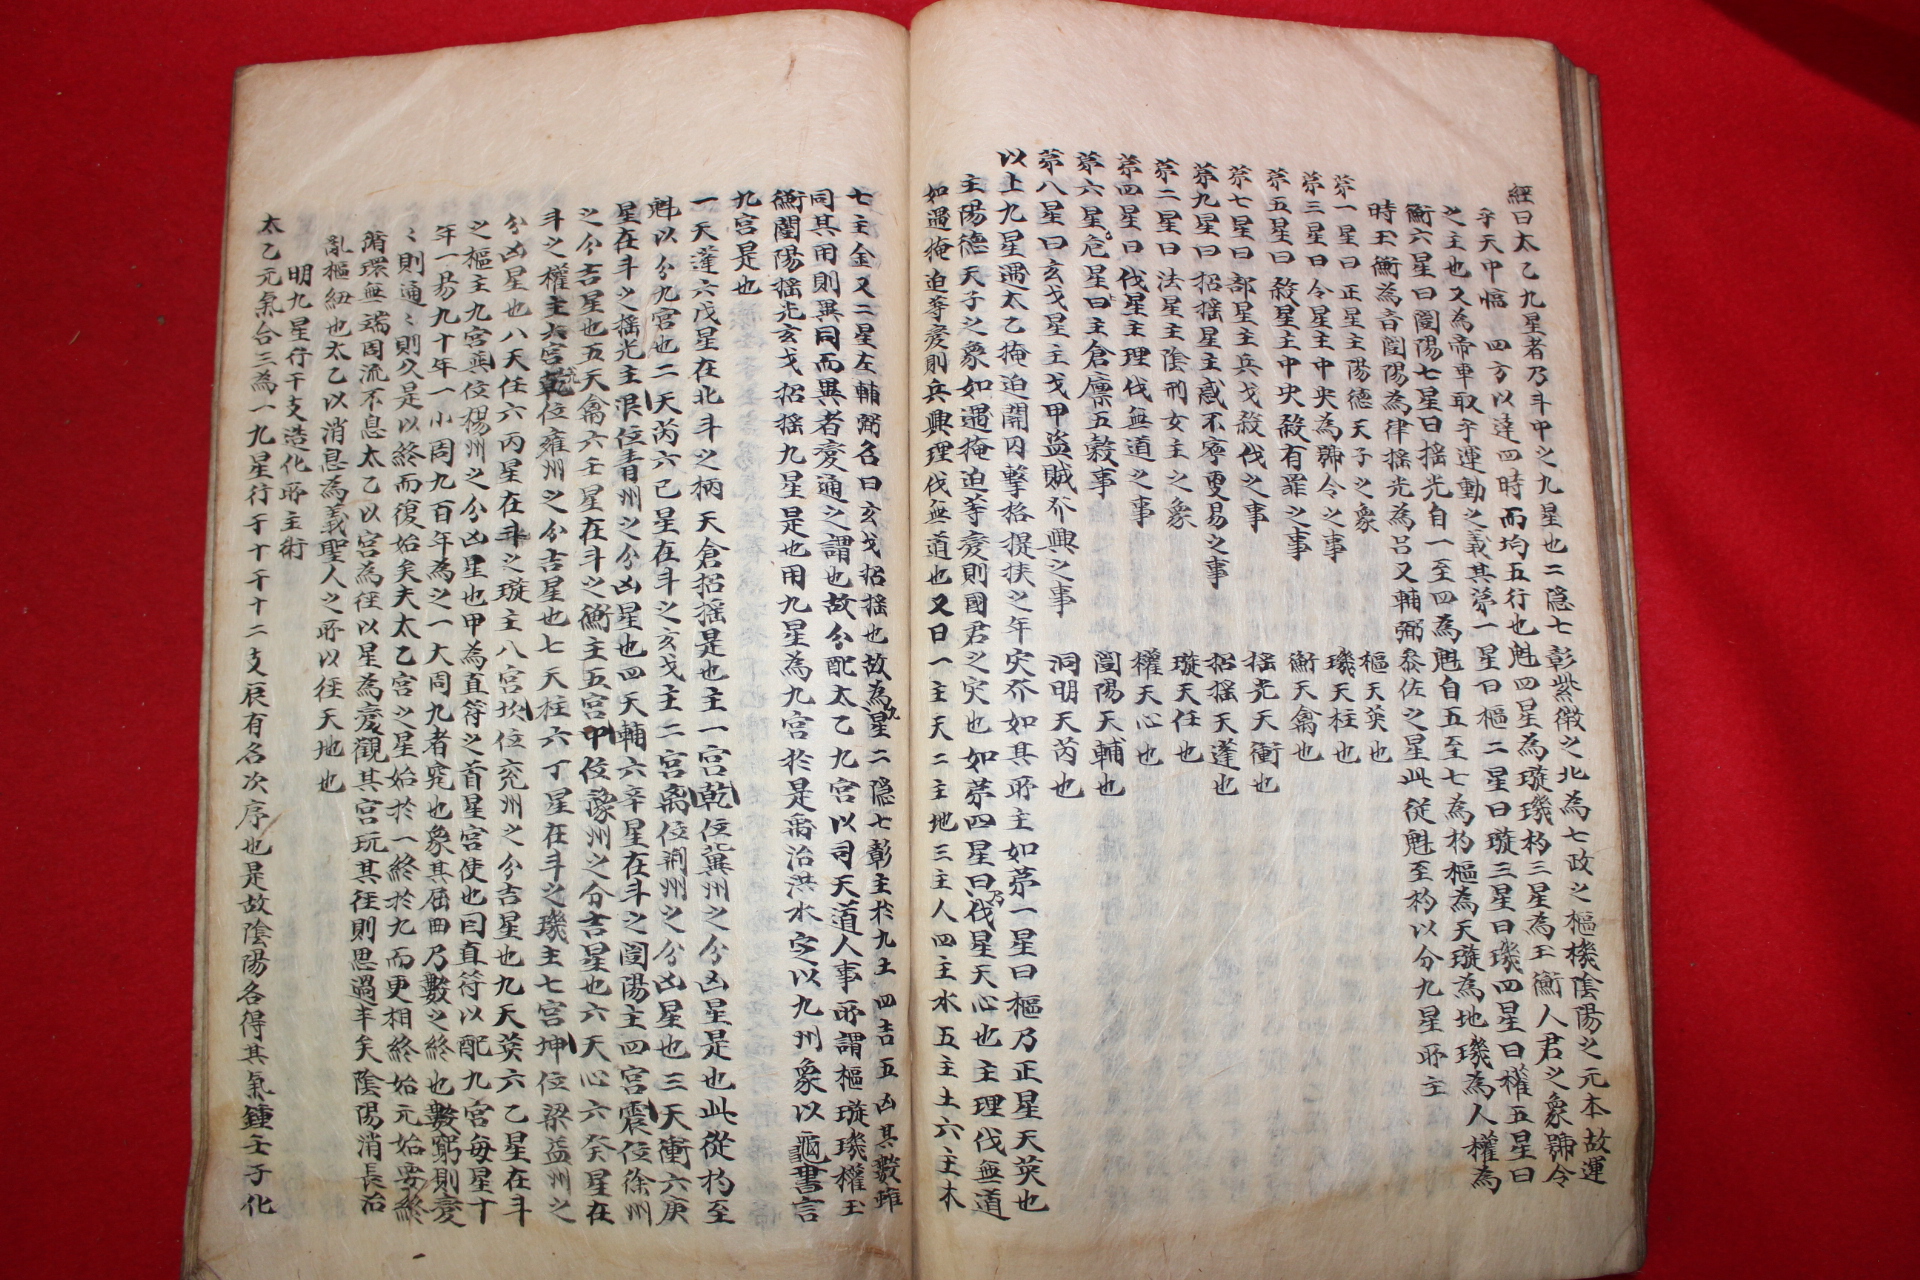 經曰太乙九星者乃斗中之九星也二隐七彰紫微之北為七政之樞機陰陽之元本故運
乎天中臨四方以達四時而均五行也魁四星為璇璣杓三星為玉衡人君之象號令
之主也又為帝車取乎運動之義其苐一星曰樞二星曰璇三星曰璣四星曰權五星曰
衡六星曰闓陽七星曰摇光自一至四為魁自五至七為杓樞為天璇為地璣為人權為
時玉衡為音闓陽為律摇光為吕又輔弼叅佐之星此從魁至杓以分九星所主
苐一星曰正星主陽德天子之象 樞天英也
苐三星曰令星主中央為號令之事 璣天柱也
苐五星曰殺星主中央殺有罪之事 衡天禽也
苐七星曰部星主兵戈殺伐之事 摇光天衝也
苐九星曰招摇星主惑不寧更易之事 招摇天蓬也
苐二星曰法星主陰刑女主之象 璇天任也
苐四星曰伐星主理伐無道之事 權天心也
苐六星危星曰主倉廪五穀事 闓陽天輔也
苐八星曰玄戈星主戈甲盗賊夰興之事 洞明天芮也
以上九星遇太乙掩迫開囚擊格提挾之年灾夰如其所主如苐一星曰樞乃正星天英也
主陽德天子之象如遇掩迫等変則國君之灾也如苐四星曰乃伐星天心也主理伐無道
如遇掩迫等変則兵興理伐無道也又曰一主天二主地三主人四主水五主土六主木
七主金又二星左輔弼名曰玄戈招摇也故為九星二隐七彰主扵九土四吉五凶其數雖
同其用則異同而異者変通之謂也故分配太乙九宮以司天道人事所謂樞璇璣權玉
衡闓陽摇光玄戈招摇九星是也用九星為九宮扵是禹治洪水定以九州象以龜書言
九宮是也
一天蓬六戊星在北斗之柄天倉招摇是也主一宮乾位冀州之分凶星是也此從杓至
魁以分九宮也二天芮六已星在斗之玄戈主二宮离位荆州之分凶星也三天衝六庚
星在斗之摇光主艮位青州之分凶星也四天輔六辛星在斗之闓陽主四宮震位徐州
之分吉星也五天禽六壬星在斗之衡主五宮中位豫州之分吉星也六天心六癸星在
斗之權主六宮乾位雍州之分吉星也七天柱六丁星在斗之璣主七宮坤位梁益州之
分凶星也八天任六丙星在斗之璇主八宮坎位兖州之分吉星也九天英六乙星在斗
之樞主九宮巽位楊州之分凶星也甲為直符之首星宮使也曰直符以配九宮每星十
年一易九十年一小周九百年為之一大周九者究也象其屈曲乃數之終也數窮則変
〻則通〻則久是以終而復始矣夫太乙宮之星始扵一終扵九而更相終始元始要終
循環無端周流不息太乙以宮為徑以星為変觀其宮玩其徃則思過半矣陰陽消長治
亂樞紐也太乙以消息為義聖人之所以徑天地也
明九星行干支造化所主術
太乙元氣台三為一九星行于十干十二支辰有名次序也是故陰陽各得其氣鍾壬子化